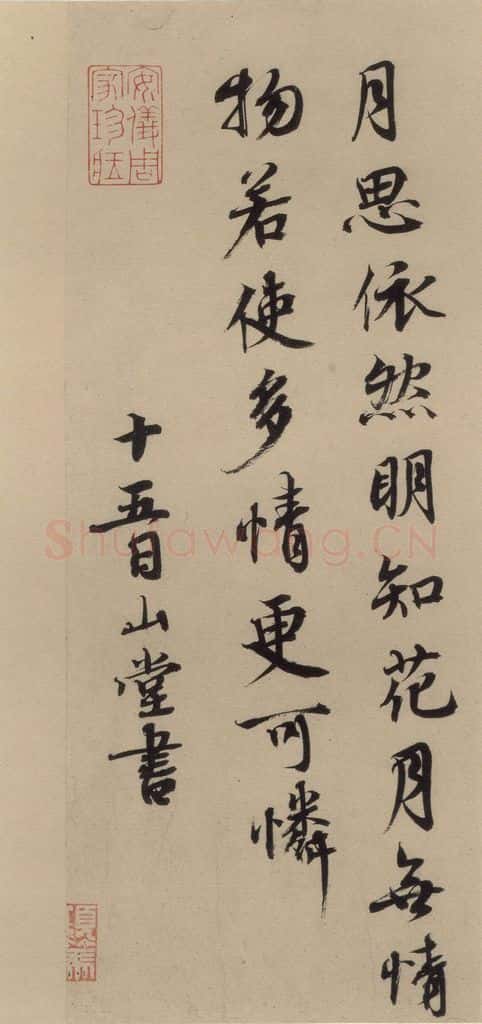 月思依然明知花月無情
物若使多情更可憐
十五日山堂書
安儀周家珍藏
Shufawang.CN